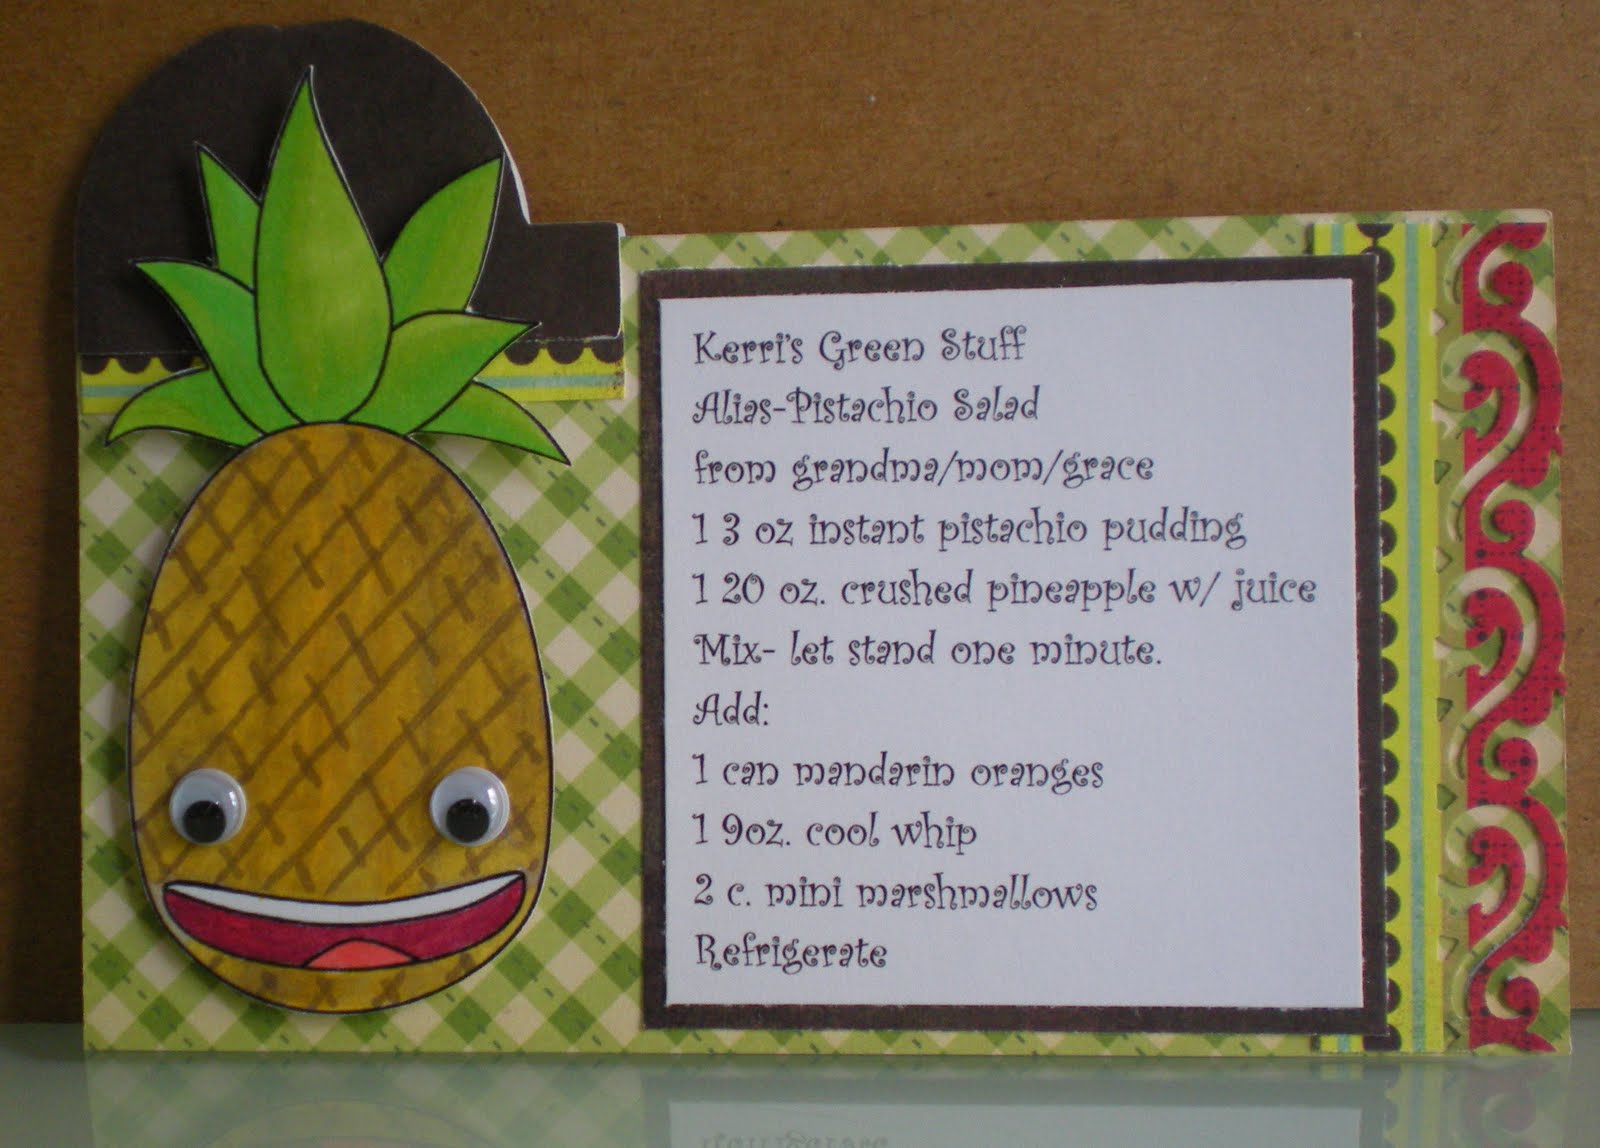 Kerri's Green Stuff
Alias-Pistachio Salad
from grandma/mom/grace
1 3 oz instant pistachio pudding
1 20 oz. crushed pineapple w/ juice
Mix- let stand one minute.
Add:
1 can mandarin oranges
1 9oz. cool whip
2 c. mini marshmallows
Refrigerate